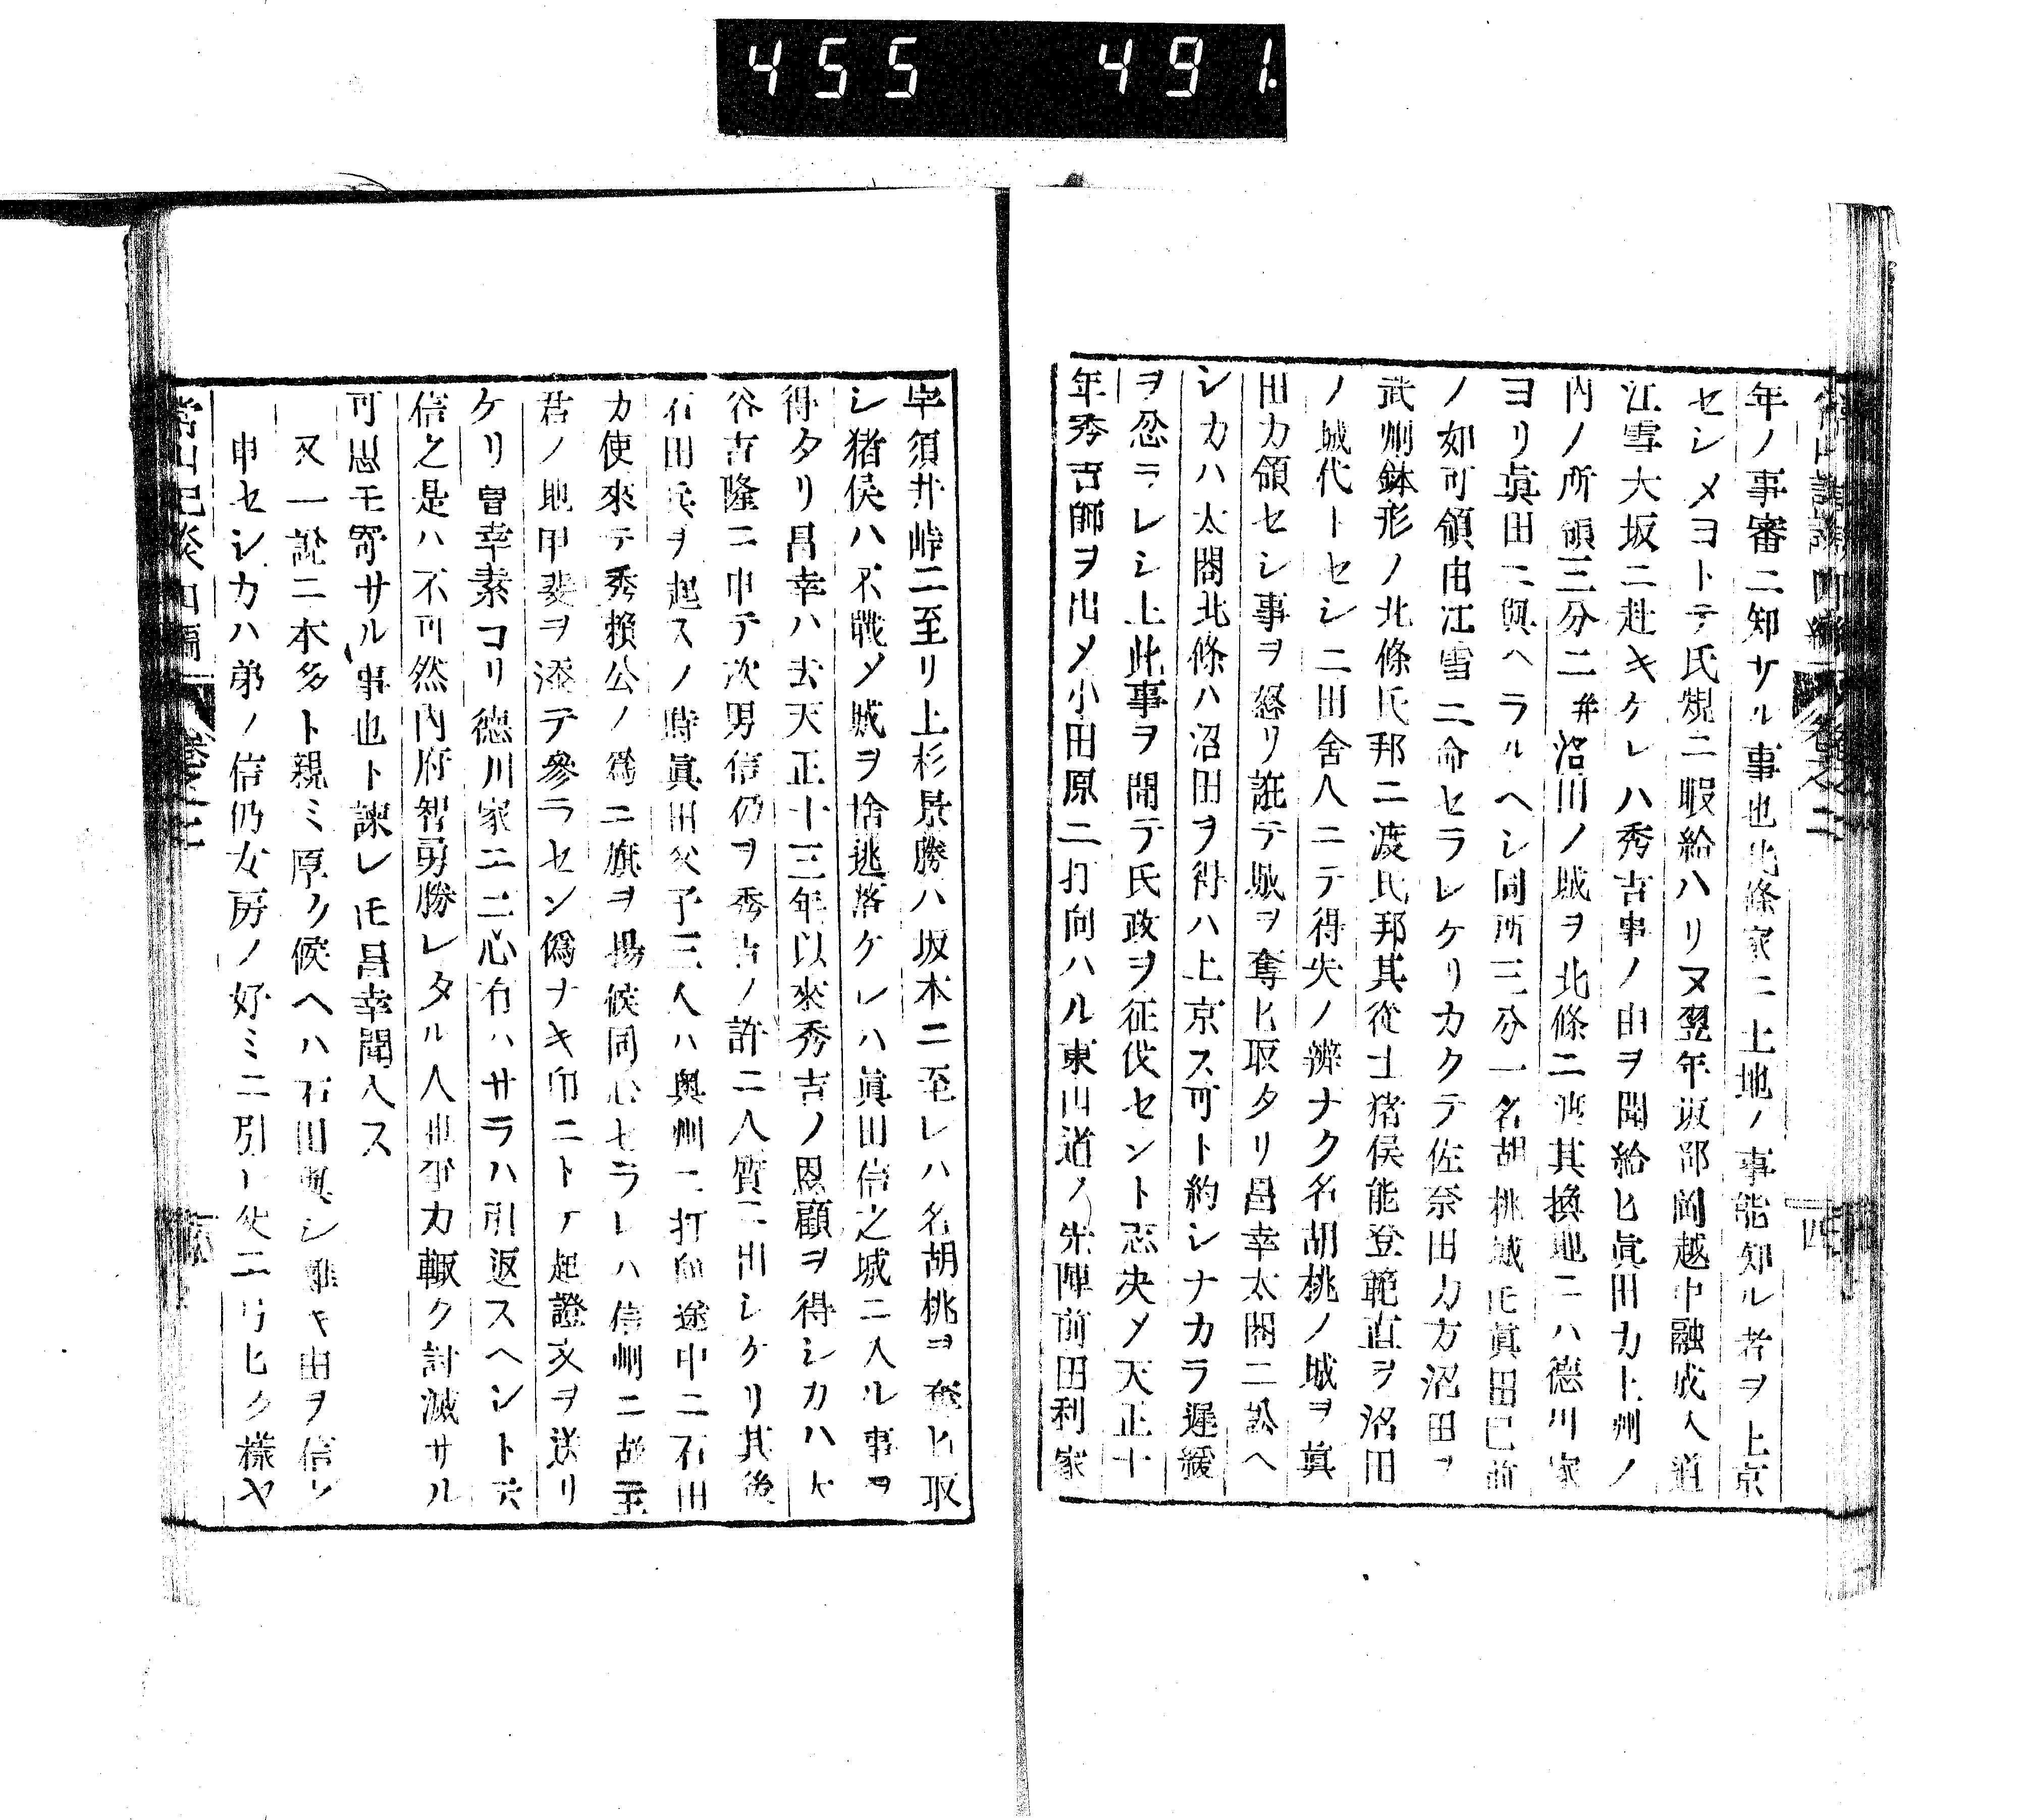 455 491
年ノ事審ニ知サル事也北條家ニ上地ノ事能知ル者ヲ上京
セシメヨトテ氏規ニ暇給ハリヌ翌年坂部岡越中融成入道
江雪大坂ニ赴キケレハ秀吉事ノ由ヲ聞給ヒ眞田カ上州ノ
内ノ所領三分二并沼田ノ城ヲ北條ニ渡其換地ニハ德川家
ヨリ眞田ニ與ヘラルヘシ同所三分一名胡桃城モ眞田已前
ノ如可領由江雪ニ命セラレケリカクテ佐奈田カ方沼田ヲ
武州鉢形ノ北條氏邦ニ渡氏邦其從士猪俣能登範直ヲ沼田
ノ城代トセシニ田舍人ニテ得失ノ辨ナク名胡桃ノ城ヲ眞
田カ領セシ事ヲ怒リ誑テ城ヲ奪ヒ取タリ昌幸太閤ニ訟ヘ
シカハ太閤北條ハ沼田ヲ得ハ上京ス可ト約シナカラ遲緩
ヲ忍ラレシ上此事ヲ聞テ氏政ヲ征伐セント志决メ天正十
年秀吉師ヲ出メ小田原ニ打向ハル東山道ノ先陣前田利家
卒須井峠ニ至リ上杉景勝ハ坂本ニ至レハ名胡桃ヲ奪ヒ取
シ猪俣ハ不戰メ城ヲ捨逃落ケレハ眞田信之城ニ入ル事ヲ
得タリ昌幸ハ去天正十三年以來秀吉ノ恩顧ヲ得シカハ大
谷吉隆ニ申テ次男信仍ヲ秀吉ノ許ニ人質ニ出シケリ其後
石田兵ヲ起スノ時眞田父子三人ハ奧州ニ打向途中ニ石田
カ使來テ秀賴公ノ爲ニ旗ヲ揚候同心セラレハ信州ニ故主
君ノ地甲斐ヲ添テ參ラセン僞ナキ印ニトテ起證文ヲ送リ
ケリ昌幸素ヨリ德川家ニ二心有ハサラハ引返スヘント云
信之是ハ不可然內府智勇勝レタル人也爭カ輙ク討滅サル
可思モ寄サル事也ト諫レモ昌幸聞入ス
又一說ニ本多ト親ミ厚ク候ヘハ石田與シ難キ由ヲ信之
申セシカハ弟ノ信仍女房ノ好ミニ引レ矢ニ弓ヒク樣ヤ